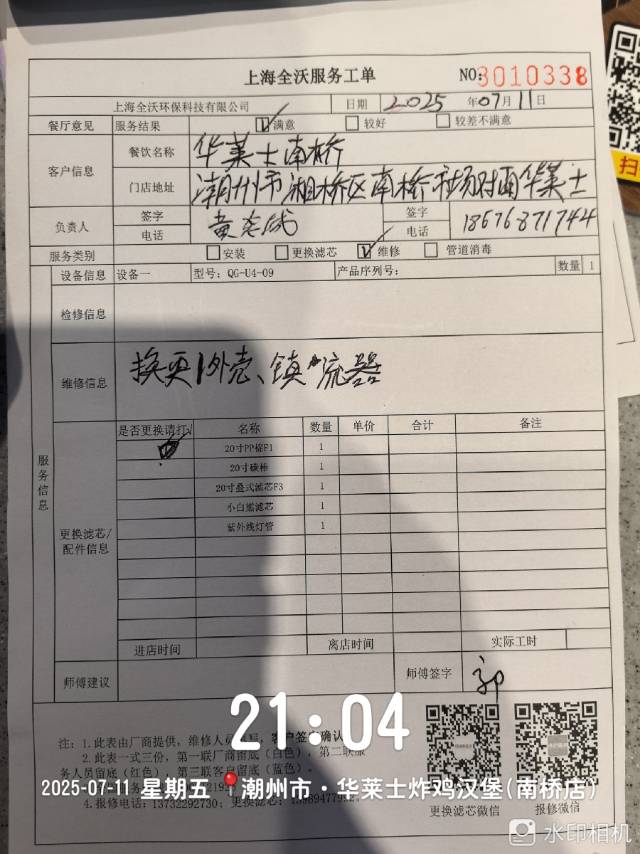 上海全沃服务工单 NO:3010338
上海全沃环保科技有限公司 日期 2025 年07月11日
餐厅意见 服务结果 ☑满意 □较好 □较差不满意
客户信息 餐饮名称 华莱士南桥
门店地址 潮州市湘桥区南桥市场对面华莱士
负责人 签字 签字
电话 电话 18676871744
服务类别 □安装 □更换滤芯 ☑维修 □管道消毒
设备信息 设备一 型号: QG-U4-09 产品序列号: 数量 1
检修信息
维修信息 换更1外壳、镇流器
服务信息
更换滤芯/配件信息
是否更换请打√ 名称 数量 单价 合计 备注
20寸PP棉F1 1
20寸碳棒 1
20寸叠式滤芯F3 1
小白滤芯 1
紫外线灯管 1
进店时间 离店时间 实际工时
师傅建议 师傅签字 郭
21:04
注: 1.此表由厂商提供, 维修人 客户签字确认
2.此表一式三份, 第一联厂商留底(白色), 第二联服
务人员留底(红色), 第三联客户留底(蓝色)。
2025-07-11 星期五 潮州市·华莱士炸鸡汉堡(南桥店)
4.报修电话: 13732292730; 更换滤芯:
更换滤芯微信 报修微信
水印相机
扫